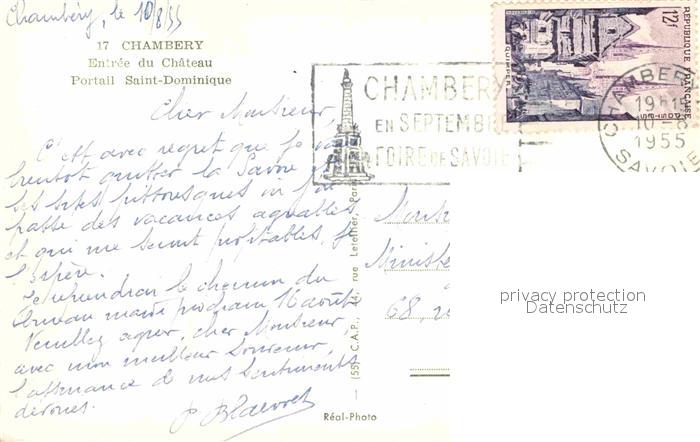 Chambéry, le 10/8/55
17 CHAMBERY
Entrée du Château
Portail Saint-Dominique
Cher Monsieur,
C'est avec regret que je
bientôt quitter la Savoie
ses sites pittoresques
passé des vacances agréables
et qui me seront profitables, je
l'espère.
Je reprendrai le chemin du
bureau mardi prochain 16 août.
Veuillez agréer, cher Monsieur,
avec mon meilleur souvenir,
l'assurance de mes sentiments
dévoués.
(55) C.A.P., 44, rue Letellier, Paris
Réal-Photo
CHAMBERY
EN SEPTEMBRE
FOIRE DE SAVOIE
12f
REPUBLIQUE FRANÇAISE
QUIMPER
CHAMBERY
19H
10-8
1955
SAVOIE
Ministè
68,
privacy protection
Datenschutz